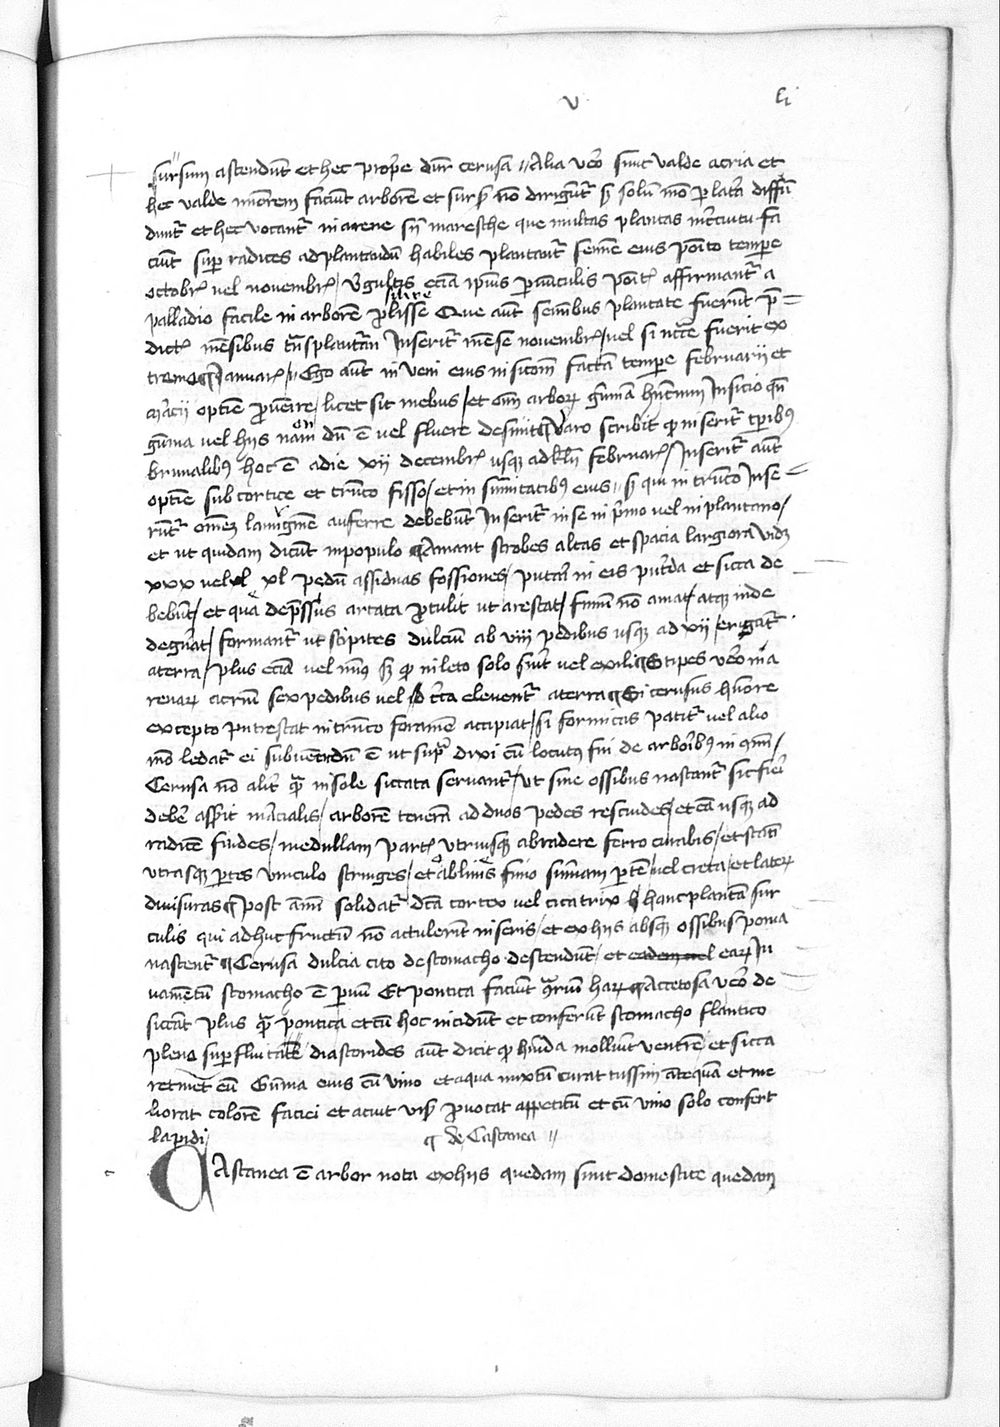 v li
sursum ascendunt et hec proprie dicuntur cerusa Alia vero sunt valde acria et
hec valde minorem faciunt arborem et sursum non diriguntur sed solum immo per latera diffun
duntur et hec vocantur marene sive maresche que multas plantas in circuitu fa
ciunt super radices ad plantandum habiles plantantur semine eius posito tempore
octobris vel novembris virgultis etiam ipsius pro vinculis positis affirmantur a
palladio facile in arborem prosilire Que autem seminibus plantate fuerunt pre
dictis mensibus transplantantur Inseritur mense novembris vel si necesse fuerit ex
tremo Januarii Ego autem inveni eius insitionem factam tempore februarii et
marcii optime provenire licet sit in ebus et omnium arborum gummam habentium Insicio quando
gumma vel hiis nondum est vel fluere desinit varo scribit quod inseritur temporibus
brumalibus hoc est a die xvii decembris usque ad kalendas februarii Inseritur autem
optime sub cortice et trunco fisso et in summitatibus eius sed qui in trunco Inse
runt omnem lanuginem auferre debebunt Inseritur in se in pruno vel in plantano
et ut quidam dicunt in populo amant scrobes altas et spacia largiora videlicet
xxx vel xl pedum assiduas fossiones putari in eis putrida et sicca de
bebunt et que densius artata protulit ut arescat fimum non amat atque inde
degenerat formantur ut stipites dulcium ab viii pedibus usque ad xii erigantur
a terra plus etiam vel minus sed quod in leto solo sunt vel exili Stipes vero ma
renarum acrium sex pedibus vel circa elevantur a terra Si cerusus humore
excepto putrescat in trunco foramen accipiat si formicas patitur vel alio
modo ledatur ei subveniendum est ut supra dixi cum locutus fui de arboribus in communi
Cerusa non aliter quam in sole siccata servantur Ut sine ossibus nascantur sic fieri
debere asserit marcialis arborem teneram ad duos pedes rescindes et eam usque ad
radicem findes medullam partis utriusque abradere ferro curabis et statim
utrasque partes vinculo stringes et oblinies fimo summam partem vel creta et laterum
divisuras post annum solidatur dicta cortex vel cicatrix hanc plantam sur
culis qui adhuc fructum non actulerint inseris et ex hiis absque ossibus poma
nascentur Cerusa dulcia cito de stomacho descendunt et earum Iu
vamentum stomacho est parvum Et pontica faciunt contrarium harum Accetosa vero de
siccant plus quam pontica et cum hoc incidunt et conferunt stomacho flantico
pleno superfluitate diascorides autem dicit quod humida molliunt ventrem et sicca
retinent eum Gumma eius cum vino et aqua mixtum curat tussim antequam et me
liorat colorem faciei et acuit visum provocat appetitum et cum vino solo confert
lapidi
de Castanea
CAstanea est arbor nota ex hiis quedam sunt domestice quedam